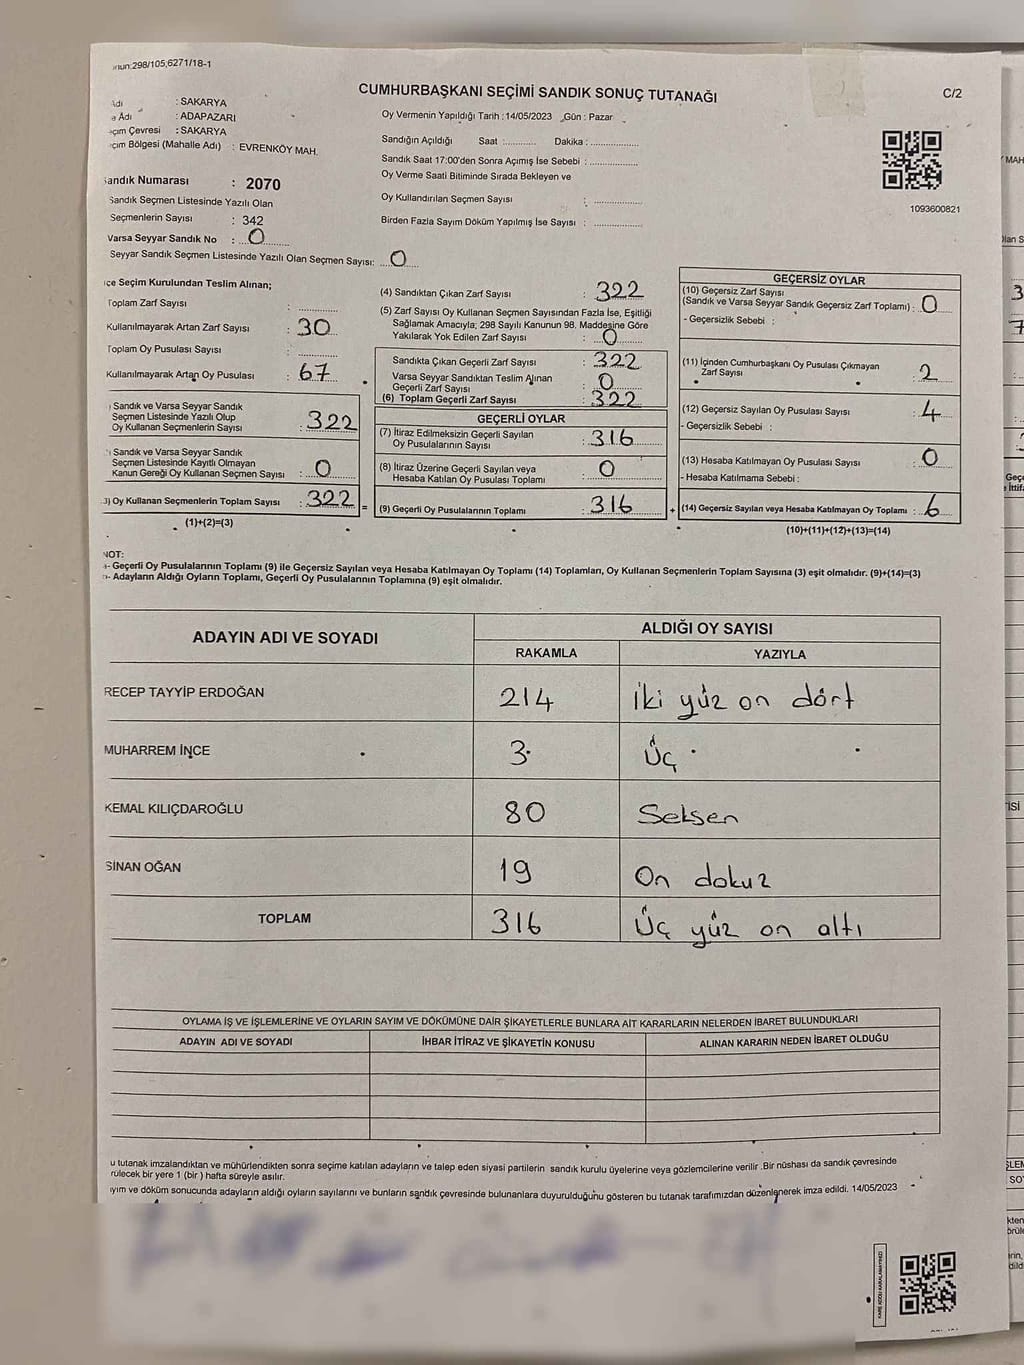 298/105;6271/18-1
CUMHURBAŞKANI SEÇİMİ SANDIK SONUÇ TUTANAĞI
C/2
: SAKARYA
Adı : ADAPAZARI
Çevresi : SAKARYA
Bölgesi (Mahalle Adı) : EVRENKÖY MAH.
Sandık Numarası : 2070
Sandık Seçmen Listesinde Yazılı Olan
Seçmenlerin Sayısı : 342
Varsa Seyyar Sandık No : 0
Seyyar Sandık Seçmen Listesinde Yazılı Olan Seçmen Sayısı: 0
Oy Vermenin Yapıldığı Tarih : 14/05/2023 Gün : Pazar
Sandığın Açıldığı Saat :........... Dakika :................
Sandık Saat 17:00'den Sonra Açımış İse Sebebi :................
Oy Verme Saati Bitiminde Sırada Bekleyen ve
Oy Kullandırılan Seçmen Sayısı : ................
Birden Fazla Sayım Döküm Yapılmış İse Sayısı : ................
1093600821
Seçim Kurulundan Teslim Alınan;
Toplam Zarf Sayısı : ..............
Kullanılmayarak Artan Zarf Sayısı : 30
Toplam Oy Pusulası Sayısı : ..............
Kullanılmayarak Artan Oy Pusulası : 67
Sandık ve Varsa Seyyar Sandık
Seçmen Listesinde Yazılı Olup
Oy Kullanan Seçmenlerin Sayısı : 322
Sandık ve Varsa Seyyar Sandık
Seçmen Listesinde Kayıtlı Olmayan
Kanun Gereği Oy Kullanan Seçmen Sayısı : 0
3) Oy Kullanan Seçmenlerin Toplam Sayısı : 322 =
(1)+(2)=(3)
(4) Sandıktan Çıkan Zarf Sayısı : 322
(5) Zarf Sayısı Oy Kullanan Seçmen Sayısından Fazla İse, Eşitliği
Sağlamak Amacıyla; 298 Sayılı Kanunun 98. Maddesine Göre
Yakılarak Yok Edilen Zarf Sayısı : 0
Sandıkta Çıkan Geçerli Zarf Sayısı : 322
Varsa Seyyar Sandıktan Teslim Alınan
Geçerli Zarf Sayısı : 0
(6) Toplam Geçerli Zarf Sayısı : 322
GEÇERLİ OYLAR
(7) İtiraz Edilmeksizin Geçerli Sayılan
Oy Pusulalarının Sayısı : 316
(8) İtiraz Üzerine Geçerli Sayılan veya
Hesaba Katılan Oy Pusulası Toplamı : 0
(9) Geçerli Oy Pusulalarının Toplamı : 316 +
GEÇERSİZ OYLAR
(10) Geçersiz Zarf Sayısı
(Sandık ve Varsa Seyyar Sandık Geçersiz Zarf Toplamı) : 0
- Geçersizlik Sebebi :
(11) İçinden Cumhurbaşkanı Oy Pusulası Çıkmayan
Zarf Sayısı : 2
(12) Geçersiz Sayılan Oy Pusulası Sayısı : 4
- Geçersizlik Sebebi :
(13) Hesaba Katılmayan Oy Pusulası Sayısı : 0
- Hesaba Katılmama Sebebi :
(14) Geçersiz Sayılan veya Hesaba Katılmayan Oy Toplamı : 6
(10)+(11)+(12)+(13)=(14)
NOT:
- Geçerli Oy Pusulalarının Toplamı (9) ile Geçersiz Sayılan veya Hesaba Katılmayan Oy Toplamı (14) Toplamları, Oy Kullanan Seçmenlerin Toplam Sayısına (3) eşit olmalıdır. (9)+(14)=(3)
- Adayların Aldığı Oyların Toplamı, Geçerli Oy Pusulalarının Toplamına (9) eşit olmalıdır.
ADAYIN ADI VE SOYADI ALDIĞI OY SAYISI
RAKAMLA YAZIYLA
RECEP TAYYİP ERDOĞAN 214 İki yüz on dört
MUHARREM İNCE 3 Üç
KEMAL KILIÇDAROĞLU 80 Seksen
SİNAN OĞAN 19 On dokuz
TOPLAM 316 Üç yüz on altı
OYLAMA İŞ VE İŞLEMLERİNE VE OYLARIN SAYIM VE DÖKÜMÜNE DAİR ŞİKAYETLERLE BUNLARA AİT KARARLARIN NELERDEN İBARET BULUNDUKLARI
ADAYIN ADI VE SOYADI İHBAR İTİRAZ VE ŞİKAYETİN KONUSU ALINAN KARARIN NEDEN İBARET OLDUĞU
u tutanak imzalandıktan ve mühürlendikten sonra seçime katılan adayların ve talep eden siyasi partilerin sandık kurulu üyelerine veya gözlemcilerine verilir .Bir nüshası da sandık çevresinde
rülecek bir yere 1 (bir ) hafta süreyle asılır.
ayım ve döküm sonucunda adayların aldığı oyların sayılarını ve bunların sandık çevresinde bulunanlara duyurulduğunu gösteren bu tutanak tarafımızdan düzenlenerek imza edildi. 14/05/2023